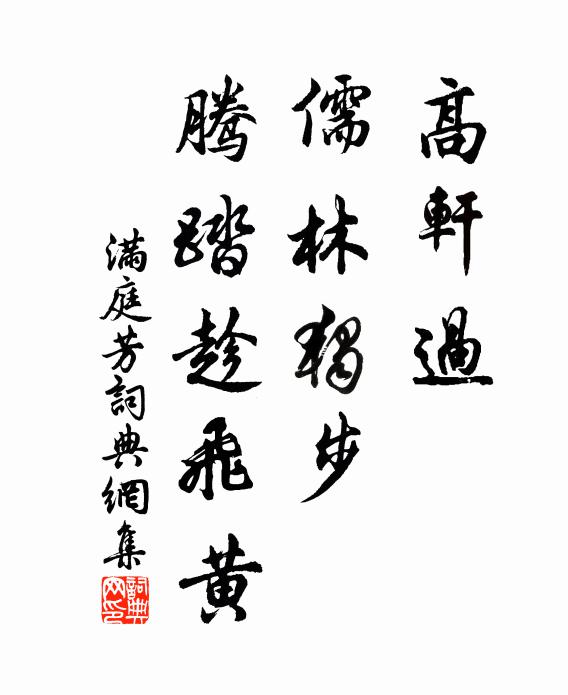 高軒過
儒林獨步
騰踏趁飛黃
滿庭芳詞典網集
詞典網印